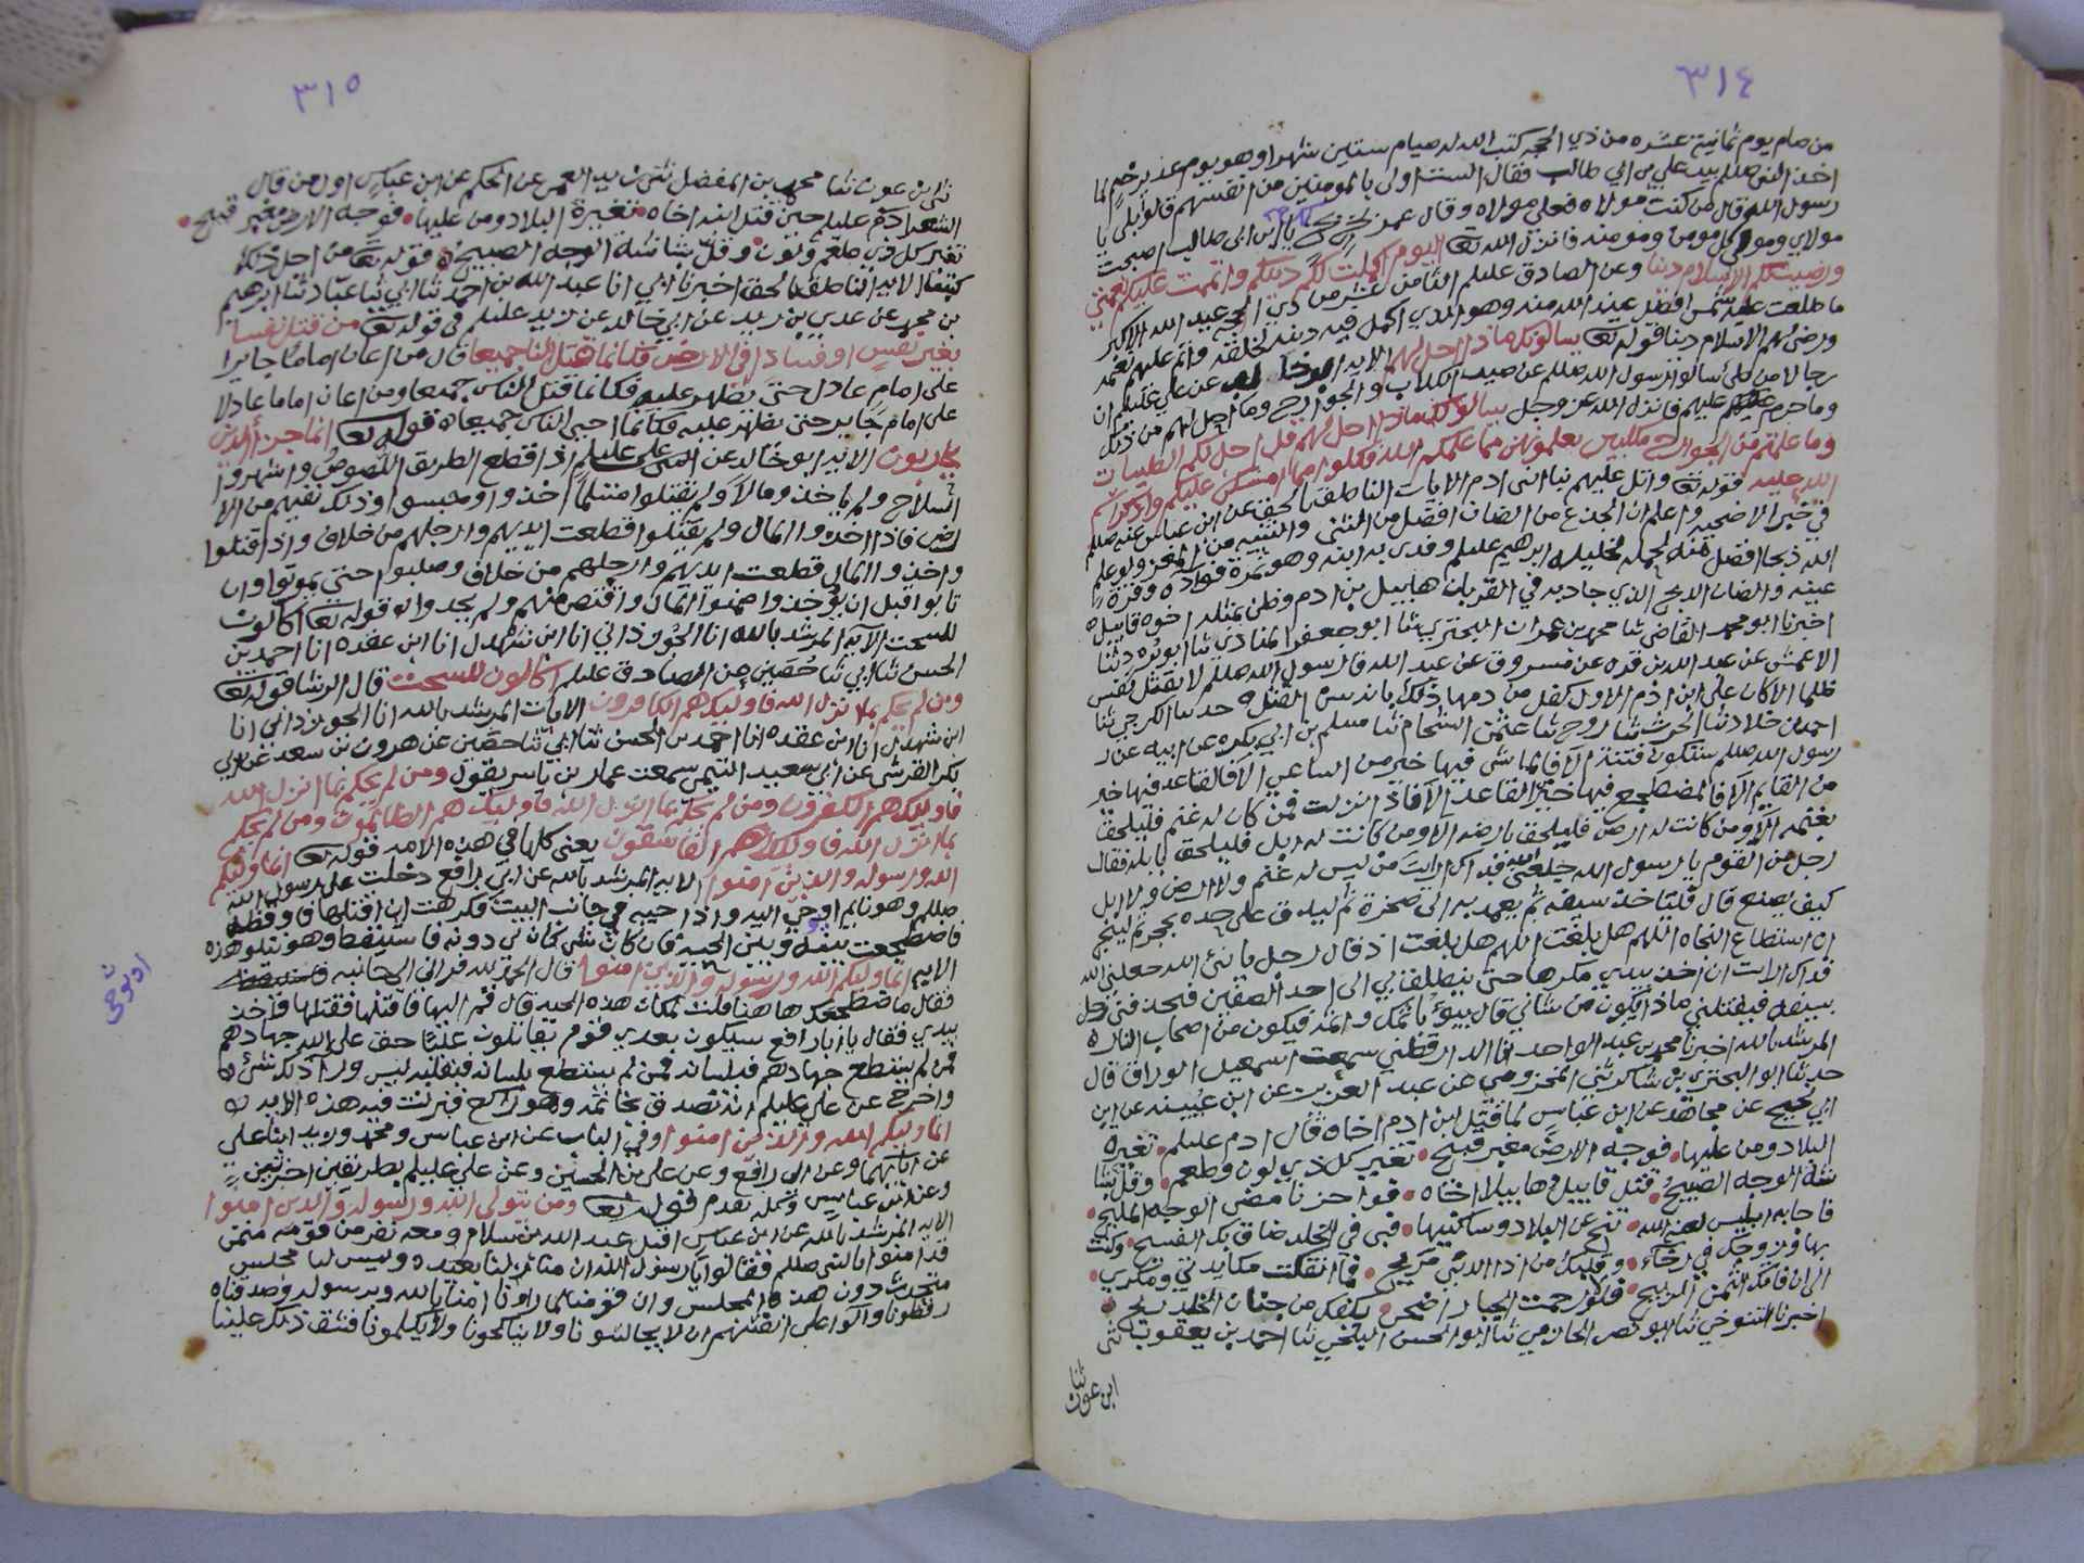 ٣١٤
من صام يوم ثمانية عشره من ذي الحجه كتب الله له صيام ستين شهرا وهو يوم غدير خم لما
اخذ النبي صللم بيد علي بن ابي طالب فقال الست اولى بالمومنين من انفسهم قالو بلى يا
رسول الله قال من كنت مولاه فعلي مولاه وقال عمر بخ بخ يا ابن ابي طالب اصبحت
مولاي ومولى كل مومن ومومنه فانزل الله تعا اليوم اكملت لكم دينكم واتممت عليكم نعمتي
ورضيت لكم الاسلام دينا وعن الصادق عليلم الثامن عشر من ذي الحجه عيد الله الاكبر
ما طلعت عليه شمس افضل عند الله منه وهو الذي اكمل فيه دينه لخلقه واتم عليهم نعمه
ورضي لهم الاسلام دينا قوله تعا يسالونك ماذا احل لهم الايه عن علي عليلم ان
رجالا من طي سالوا رسول الله صللم عن صيد الكلاب والجوارح وما احل لهم من ذلك
وما حرم عليهم فانزل الله عز وجل يسالونك ماذا احل لهم قل احل لكم الطيبات
وما علمتم من الجوارح مكلبين تعلمونهن مما علمكم الله فكلوا مما امسكن عليكم واذكروا اسم
الله عليه قوله تعا واتل عليهم نبا ابني ادم الايات الناطق بالحق عن ابن عباس عنه صللم
في خبر الاضحيه واعلم ان الجذع من الضان افضل من المثنى والمثنيه من المعز ولو علم
الله ذبحا افضل منه لجعله لخليله ابرهيم عليلم وفدى به ابنه وهو ثمرة فواده وقرة
عينه والضان الذبح الذي جاد به في القربان هابيل بن ادم وظن بمثله اخوه قابيل
اخبرنا ابو محمد القاضي ثنا محمد بن عمران البحتري ثنا ابو جعفر المنادي ثنا ابو بدر ثنا
الاعمش عن عبد الله بن مره عن مسروق عن عبد الله قال رسول الله صللم لا يقتل نفس
ظلما الا كان على ابن ادم الاول كفل من دمها ذلك بانه سن القتل حدثنا الكرجي ثنا
احمد بن خلاد ثنا الحرث ثنا روح ثنا عثمن الشحام ثنا مسلم بن ابي بكره عن ابيه عن
رسول الله صللم ستكون فتنة الا فالماشي فيها خير من الساعي الا فالقاعد فيها خير
من القايم الا فالمضطجع فيها خير القاعد الا فاذا نزلت فمن كان له غنم فليلحق
بغنمه الا ومن كانت له ارض فليلحق بارضه الا ومن كانت له ابل فليلحق بابله فقال
رجل من القوم يا رسول الله جعلني الله فداك ارايت من ليس له غنم ولا ارض ولا ابل
كيف يصنع قال فلياخذ سيفه ثم يعمد به الى صخرة ثم ليدق على حده بحجر ثم لينج
ان استطاع النجاه اللهم هل بلغت اللهم هل بلغت اذ قال رجل يا نبي الله جعلني الله
فداك ارايت ان اخذ بيدي مكرها حتى ينطلق بي الى احد الصفين فيحذفني رجل
بسيفه فيقتلني ماذا يكون من شاني قال يبوء باثمك واثمه فيكون من اصحاب النار
المرشد بالله اخبرنا محمد بن عبد الواحد انا الدارقطني سمعت اسمعيل الوراق قال
حدثنا ابو البحتري بن شاكر ثني المخزومي عن عبد العزيز عن ابن عيينه عن ابن
ابي نجيح عن مجاهد عن ابن عباس لما قتل ابن ادم اخاه قال ادم عليلم تغيره
البلاد ومن عليها فوجه الارض مغبر قبيح تغير كل ذي لون وطعم وقل بشا
شة الوجه الصبيح قتل قابيل هابيلا اخاه فوا حزنا مضى الوجه المليح
فاجابه ابليس لعنه الله تنح عن البلاد وساكنيها فبي في الخلد ضاق بك الفسيح وكنت
بها وزوجك في رخاء وقلبك من اذا الدنيى مريح فما انفكت مكايدتي ومكري
الى ان فاتك الثمن الربيح فلولا رحمت الجبار اضحى بكفك من جنان الخلد ريح
اخبرنا التنوخي ثنا ابو نصر ثنا ابو الحسن البلخي ثنا احمد بن يعقوب ثنى
ابن عون ثنا
٣١٥
ثنى ابن عون ثنا محمد بن المفضل ثنى يزيد العمي عن الحكم عن ابن عباس اول من قال
الشعر ادم عليلم حين قتل ابنه اخاه تغيرة البلاد ومن عليها فوجه الارض مغبر قبيح
تغير كل ذي طعم ولون وقل بشاشة الوجه الصبيح قوله تعا من اجل ذلك
كتبنا الايه الناطق بالحق اخبرنا ابي انا عبد الله بن احمد ثنا ابي ثنا عباد ثنا ابرهيم
بن محمد عن عدي بن زيد عن ابي خالد عن زيد عليلم في قوله تعا من قتل نفسا
بغير نفس او فساد في الارض فكانما قتل الناس جميعا قال من اعان اماما جايرا
على امام عادل حتى يظهر عليه فكانما قتل الناس جميعا ومن اعان اماما عادلا
على امام جاير حتى يظهر عليه فكانما احيى الناس جميعا قوله تعا انما جزاء الذين
يحاربون الايه ابو خالد عن علي عليلم اذا قطع الطريق اللصوص واشهروا
السلاح ولم ياخذوا مالا ولم يقتلوا مسلما اخذوا وحبسوا وذلك نفيهم من الا
رض فاذا اخذوا المال ولم يقتلوا قطعت ايديهم وارجلهم من خلاف واذا قتلوا
واخذوا المال قطعت ايديهم وارجلهم من خلاف وصلبوا حتى يموتوا وان
تابوا قبل ان يوخذوا ضمنوا المال واقتص منهم ولم يحدوا قوله تعا اكالون
للسحت الايه المرشد بالله انا الجوزداني انا ابن شهدل انا ابن عقده انا احمد بن
الحسن ثنا ابي ثنا حصين عن الصادق عليلم اكالون للسحت قال الرشا قوله تعا
ومن لم يحكم بما انزل الله فاوليك هم الكافرون الايات المرشد بالله انا الجوزداني انا
ابن شهدل انا ابن عقده انا احمد بن الحسن ثنا ابي ثنا حصين عن هرون بن سعد عن ابي
بكر القرشي عن ابي سعيد التيمي سمعت عمار بن ياسر يقول ومن لم يحكم بما انزل الله
فاوليك هم الكفرون ومن لم يحكم بما انزل الله فاوليك هم الظالمون ومن لم يحكم
بما انزل الله فاوليك هم الفاسقون يعني كلها في هذه الامه قوله تعا انما وليكم
الله ورسوله والذين امنوا الايه المرشد بالله عن ابي رافع دخلت على رسول الله
صللم وهو نايم او يوحى اليه واذا حيه في جانب البيت فكرهت ان اقتلها فاوقظه
فاضطجعت بينه وبين الحيه فان كان شي كان لي دونه فاستيقظ وهو يتلو هذه
الايه انما وليكم الله ورسوله والذين امنوا قال الحمد لله فراني الى جانبه
فقال ما ضجعك هاهنا قلت لمكان هذه الحيه قال قم اليها فاقتلها فقتلتها فاخذ
بيدي فقال يا ابا رافع سيكون بعدي قوم يقاتلون عليا حق على الله جهادهم
فمن لم يستطع جهادهم فبلسانه فمن لم يستطع بلسانه فبقلبه ليس ورا ذلك شي
واخرج عن علي عليلم انه تصدق بخاتمه وهو راكع فنزلت فيه هذه الايه
انما وليكم الله والذين امنوا وفي الباب عن ابن عباس ومحمد وزيد ابنا علي
عن ابايهما وعن ابي رافع وعن علي بن الحسين وعن علي عليلم بطريقين اخريين
وعن ابن عباس وكله تقدم قوله تعا ومن يتولى الله ورسوله والذين امنوا
الايه المرشد بالله عن ابن عباس اقبل عبد الله بن سلام ومعه نفر من قومه ممن
قد امنوا بالنبي صللم فقالوا يا رسول الله ان منازلنا بعيده وليس لنا مجلس
متحدث دون هذا المجلس وان قومنا لما راونا امنا بالله وبرسوله وصدقناه
رفضونا والوا على انفسهم ان لا يجالسونا ولا يناكحونا ولا يكلمونا فشق ذلك علينا
او يوحى